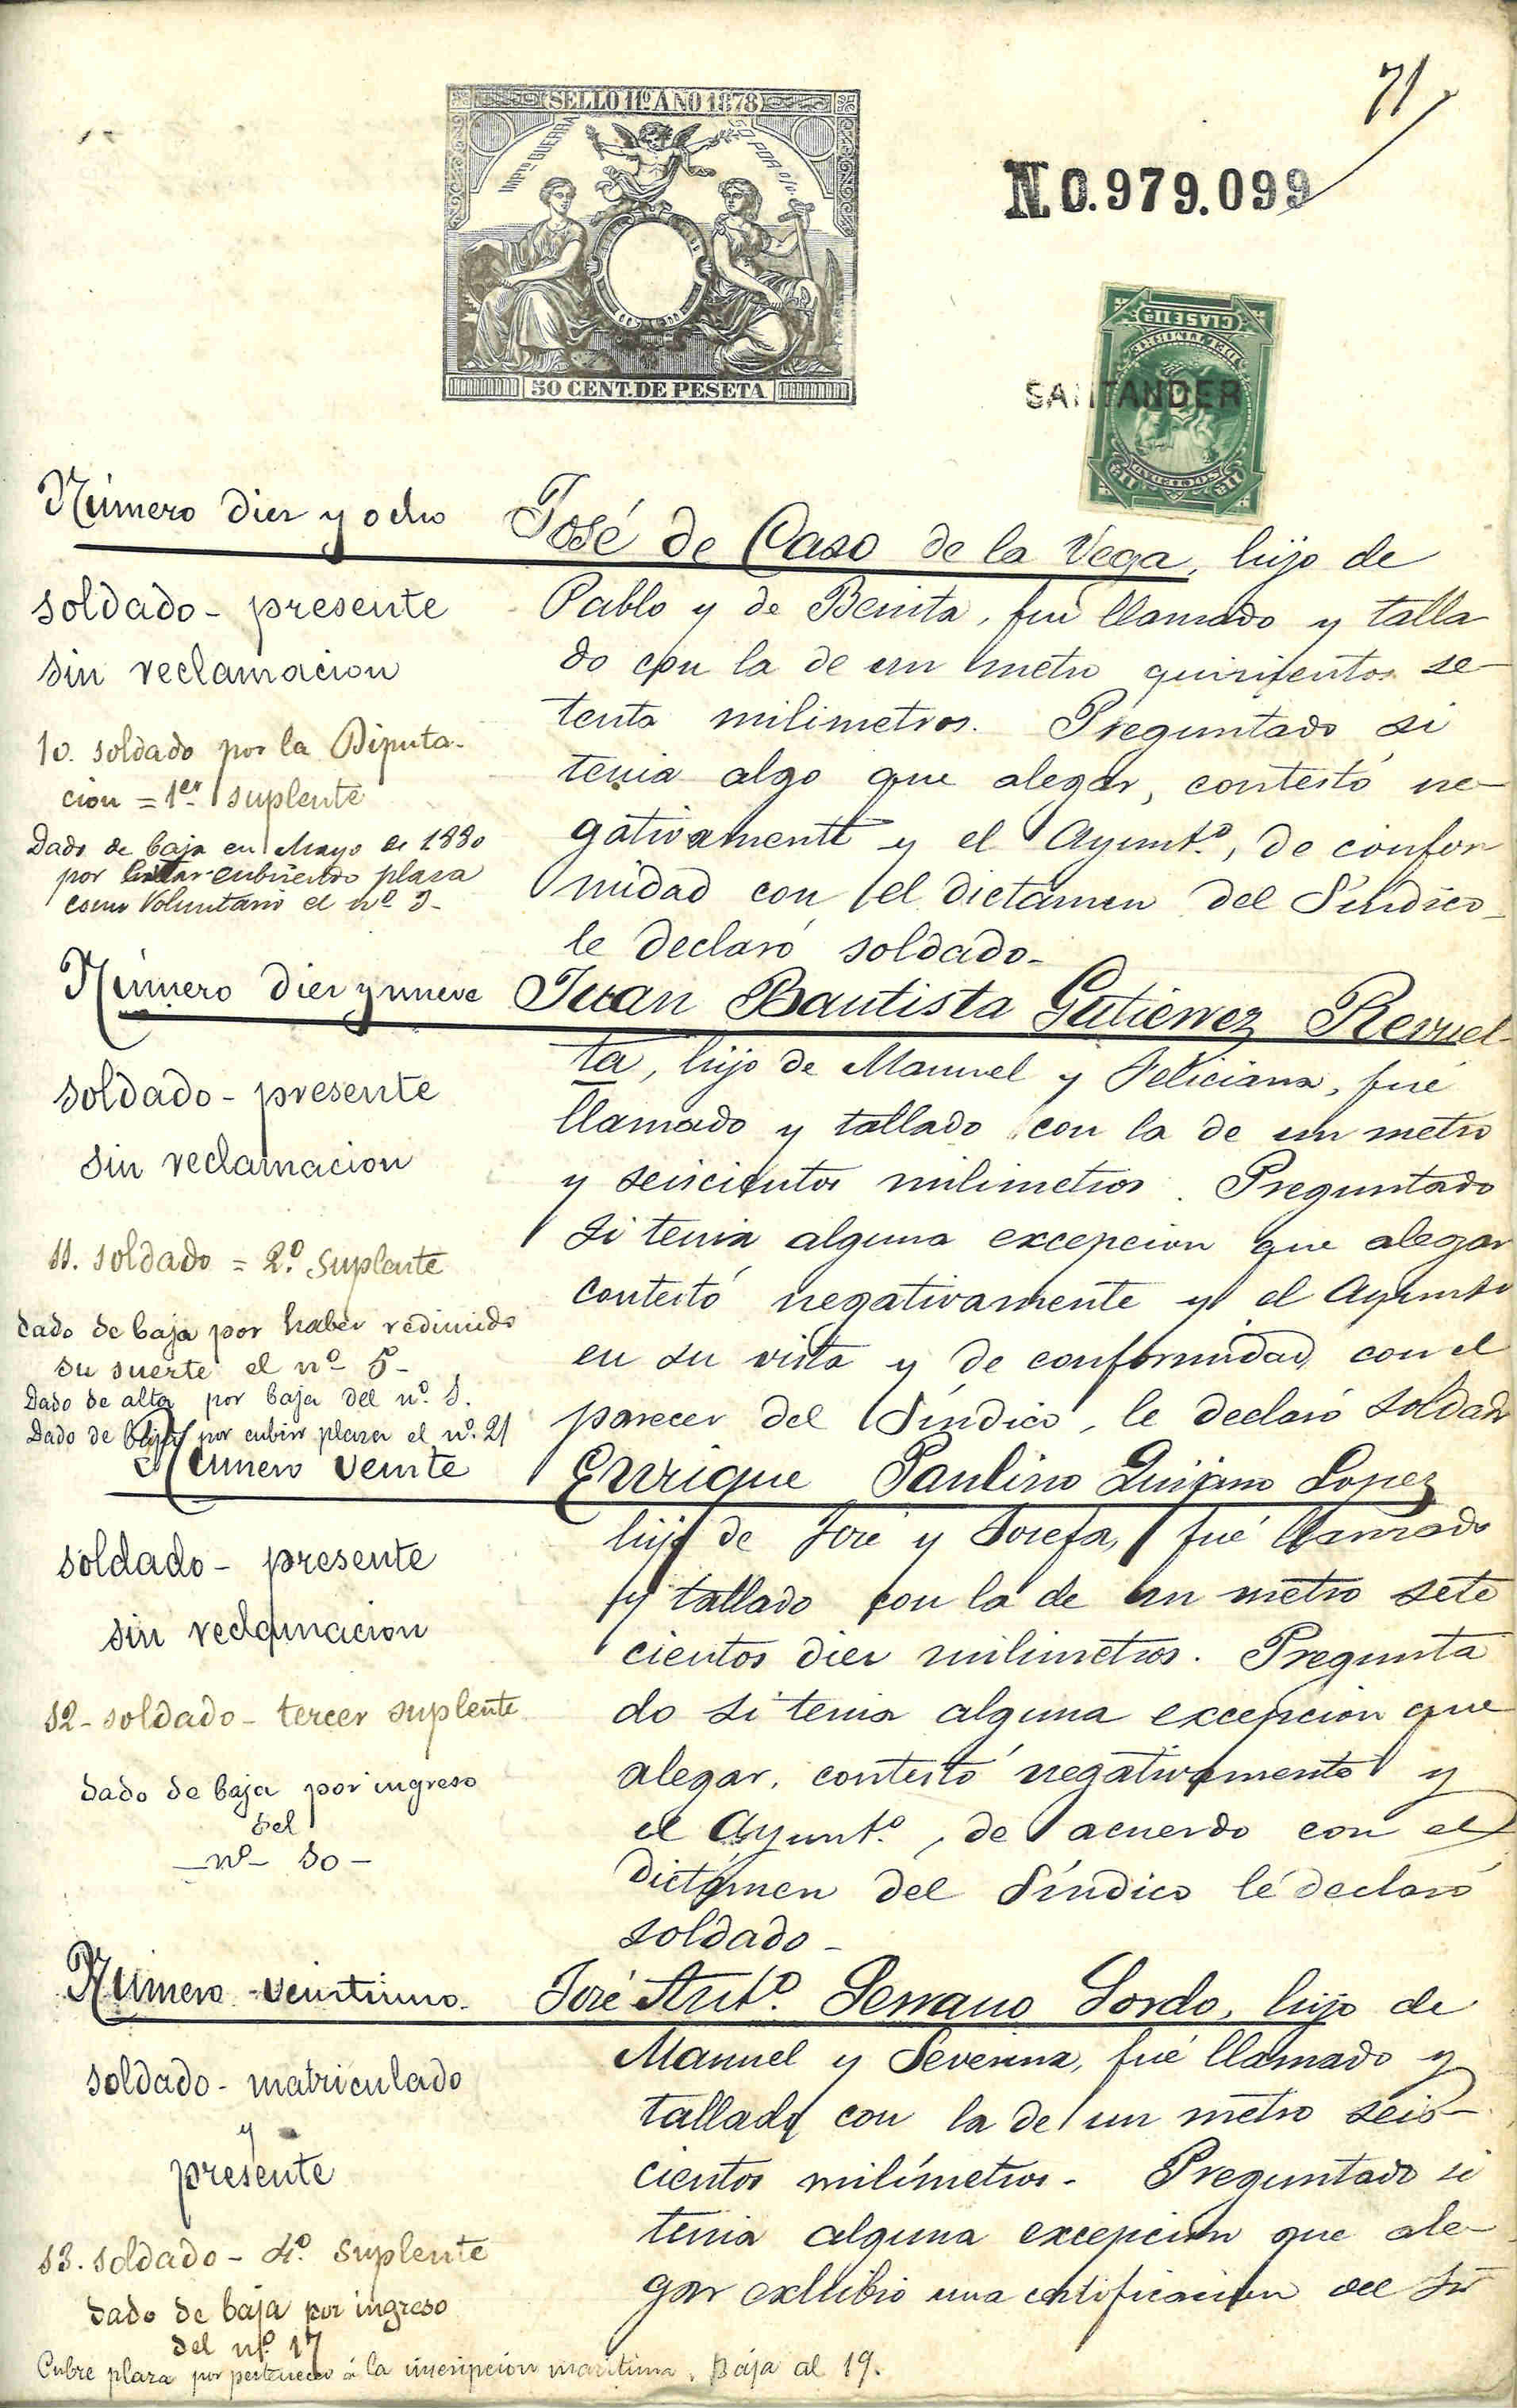 71
SELLO 11º AÑO 1878
IMPto GUERRA
50 CENT. DE PESETA
N.0.979.099
CLASE 11ª
SANTANDER
Número diez y ocho
José de Caso de la Vega, hijo de
soldado - presente
sin reclamacion
10. soldado por la Diputa-
cion = 1er suplente
Dado de baja en Mayo de 1880
por cubriendo plaza
como Voluntario el nº 3-
Pablo y de Benita, fué llamado y talla
do con la de un metro quinientos se-
tenta milimetros. Preguntado si
tenia algo que alegar, contestó ne-
gativamente y el Ayuntº, de confor
midad con el dictámen del Síndico
le declaró soldado-
Número diez y nueve
Juan Bautista Gutierrez Revuel-
soldado - presente
sin reclamacion
11. soldado = 2º suplente
dado de baja por haber redimido
su suerte el nº 5-
Dado de alta por baja del nº
Dado de baja por cubrir plaza el nº 21
ta, hijo de Manuel y Feliciana, fué
llamado y tallado con la de un metro
y seiscientos milimetros. Preguntado
si tenia alguna excepcion que alegar
contestó negativamente y el Ayuntº
en su vista y de conformidad con el
parecer del Síndico, le declaró soldado
Número veinte
Enrique Paulino Quijano Lopez
soldado - presente
sin reclamacion
12- soldado - tercer suplente
dado de baja por ingreso
del
nº 10-
hijo de José y Josefa, fué llamado
y tallado con la de un metro sete
cientos diez milimetros. Pregunta
do si tenia alguna excepcion que
alegar, contestó negativamente y
el Ayuntº, de acuerdo con el
dictámen del Síndico le declaró
soldado-
Número veintiuno-
José Antº Serrano Sordo, hijo de
soldado - matriculado
y
presente
13. soldado - 4º suplente
dado de baja por ingreso
del nº 17
Manuel y Severina, fué llamado y
tallado con la de un metro seis-
cientos milímetros- Preguntado si
tenia alguna excepcion que ale-
gar exhibio una certificacion del Sr
Cubre plaza por pertenecer á la inscripcion maritima. Baja al 19.